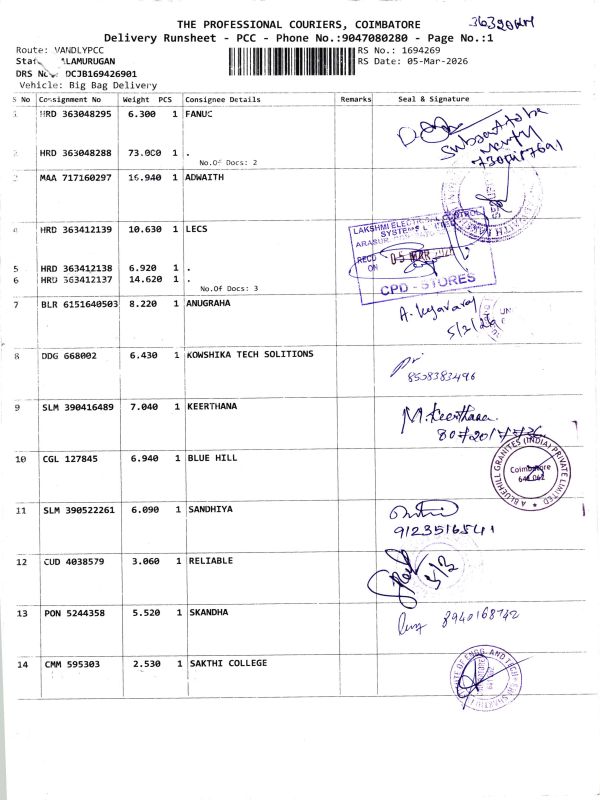 THE PROFESSIONAL COURIERS, COIMBATORE
Delivery Runsheet - PCC - Phone No.:9047080280 - Page No.:1
Route: VANDLYPCC
RS No.: 1694269
ALAMURUGAN
RS Date: 05-Mar-2026
DRS No DCJB169426901
Vehicle: Big Bag Delivery
S No Consignment No Weight PCS Consignee Details Remarks Seal & Signature
1 HRD 363048295 6.300 1 FANUC
2 HRD 363048288 73.000 1 .
No.Of Docs: 2
3 MAA 717160297 16.940 1 ADWAITH
4 HRD 363412139 10.630 1 LECS
LAKSHMI ELECTRICAL CONTROL
SYSTEMS
ARASUR
RECD ON 05 MAR
CPD - STORES
5 HRD 363412138 6.920 1 .
6 HRD 363412137 14.620 1 .
No.Of Docs: 3
7 BLR 6151640503 8.220 1 ANUGRAHA
8 DDG 668002 6.430 1 KOWSHIKA TECH SOLITIONS
8508383496
9 SLM 390416489 7.040 1 KEERTHANA
M. Keerthana
10 CGL 127845 6.940 1 BLUE HILL
A BLUEHILL GRANITES (INDIA) PRIVATE LIMITED
Coimbatore
641 062
11 SLM 390522261 6.090 1 SANDHIYA
9123516541
12 CUD 4038579 3.060 1 RELIABLE
13 PON 5244358 5.520 1 SKANDHA
8940168742
14 CMM 595303 2.530 1 SAKTHI COLLEGE